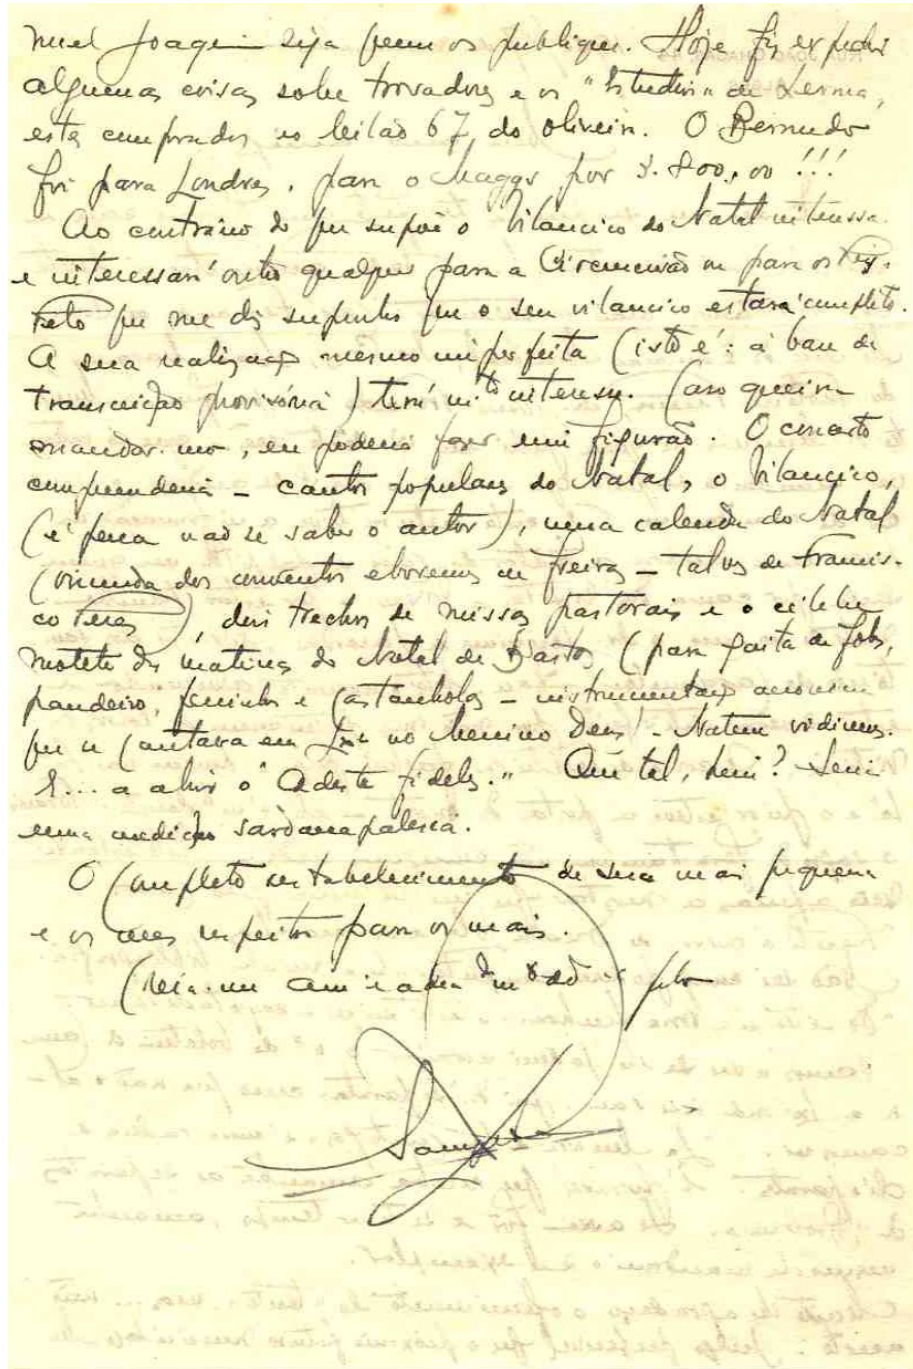 nuel Joaquim seja quem os publique. Hoje fiz expedir
algumas coisas sobre trovadores e os "Estudios de Lerma,
esta comprados no leilão 67, do Oliveira. O Bermudo
foi para Londres, para o Maggs por 8.800,00!!!
Ao contrário do que supõe o Vilancico do Natal interessa
e interessará outro qualquer para a Circuncisão ou para os Reis.
que me diz suponho que o seu vilancico estará completo.
A sua realização mesmo imperfeita (isto é: à base de
transcrição provisória) terá mto interesse. Caso queira
mandar-mo, eu poderia fazer um figurão. O concerto
compreenderia – cantos populares do Natal, o Vilancico,
(é pena não se saber o autor), uma calenda do Natal
(oriunda dos conventos eborenses de freiras – talvez de Francis-
co Peres), dois trechos de missas pastorais e o célebre
motete das matinas do Natal de Bastos (para gaita de foles,
pandeiro, ferrinhos e castanholas – instrumentação
que se cantava em no Menino Deus! – Natum vidimus.
E... a abrir o "Adeste fideles." Que tal, hein? Seria
uma audição sardanapalesca.
O completo restabelecimento de sua mais pequena
e os meus respeitos para os mais.
Creia-me